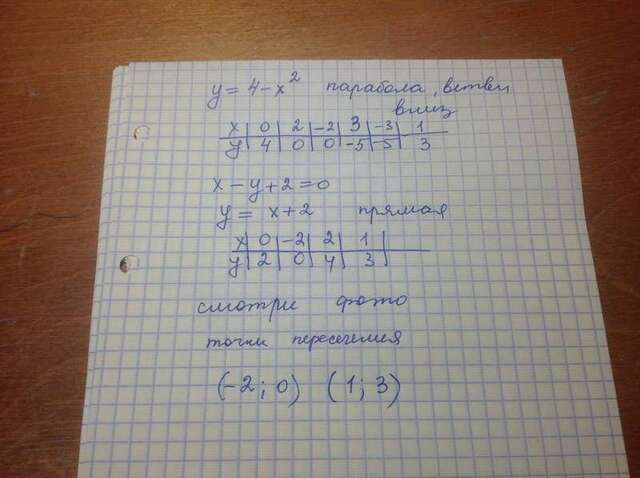 y = 4 - x² парабола, ветви
вниз
x | 0 | 2 | -2 | 3 | -3 | 1
y | 4 | 0 | 0 | -5 | -5 | 3
x - y + 2 = 0
y = x + 2 прямая
x | 0 | -2 | 2 | 1 |
y | 2 | 0 | 4 | 3 |
смотри фото
точки пересечения
(-2; 0) (1; 3)